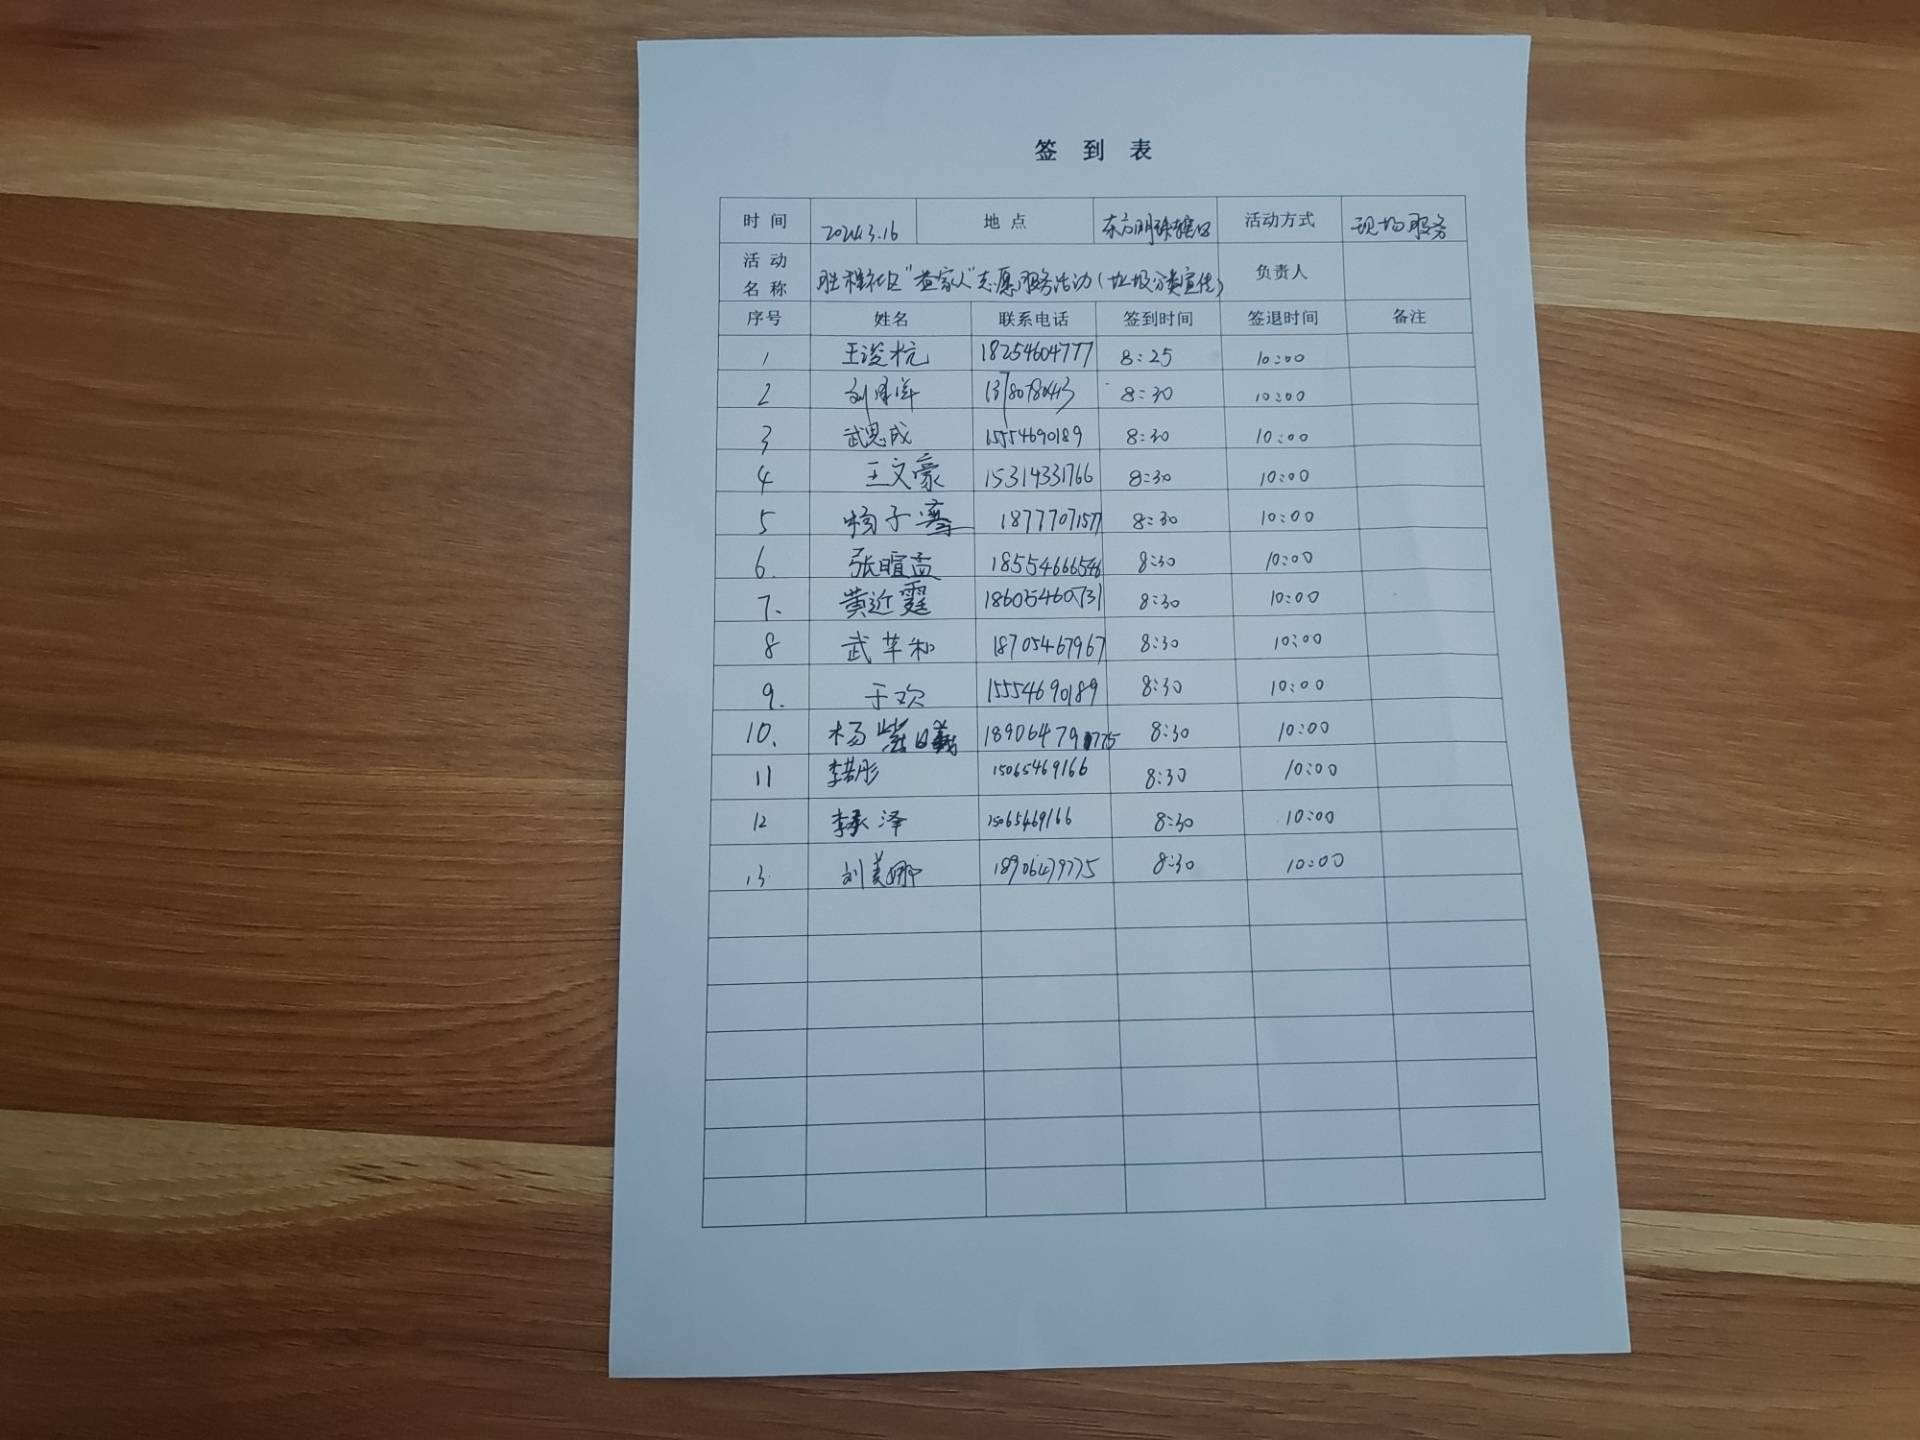 签 到 表
时 间 2024.3.16 地 点 东方明珠 活动方式 现场服务
活 动 名 称 社区"益家人"志愿服务活动(垃圾分类宣传) 负责人
序号 姓名 联系电话 签到时间 签退时间 备注
1 王浚杭 18254604777 8:25 10:00
2 刘 8:30 10:00
3 武思成 15554690189 8:30 10:00
4 王文豪 15314331766 8:30 10:00
5 杨子骞 8:30 10:00
6. 张暄孟 18554666546 8:30 10:00
7. 黄近霆 8:30 10:00
8 武芊和 18705467967 8:30 10:00
9. 于欢 15554690189 8:30 10:00
10. 杨紫曦 8:30 10:00
11 李若彤 15065469166 8:30 10:00
12 李承泽 15065469166 8:30 10:00
13 刘美娜 18906479775 8:30 10:00